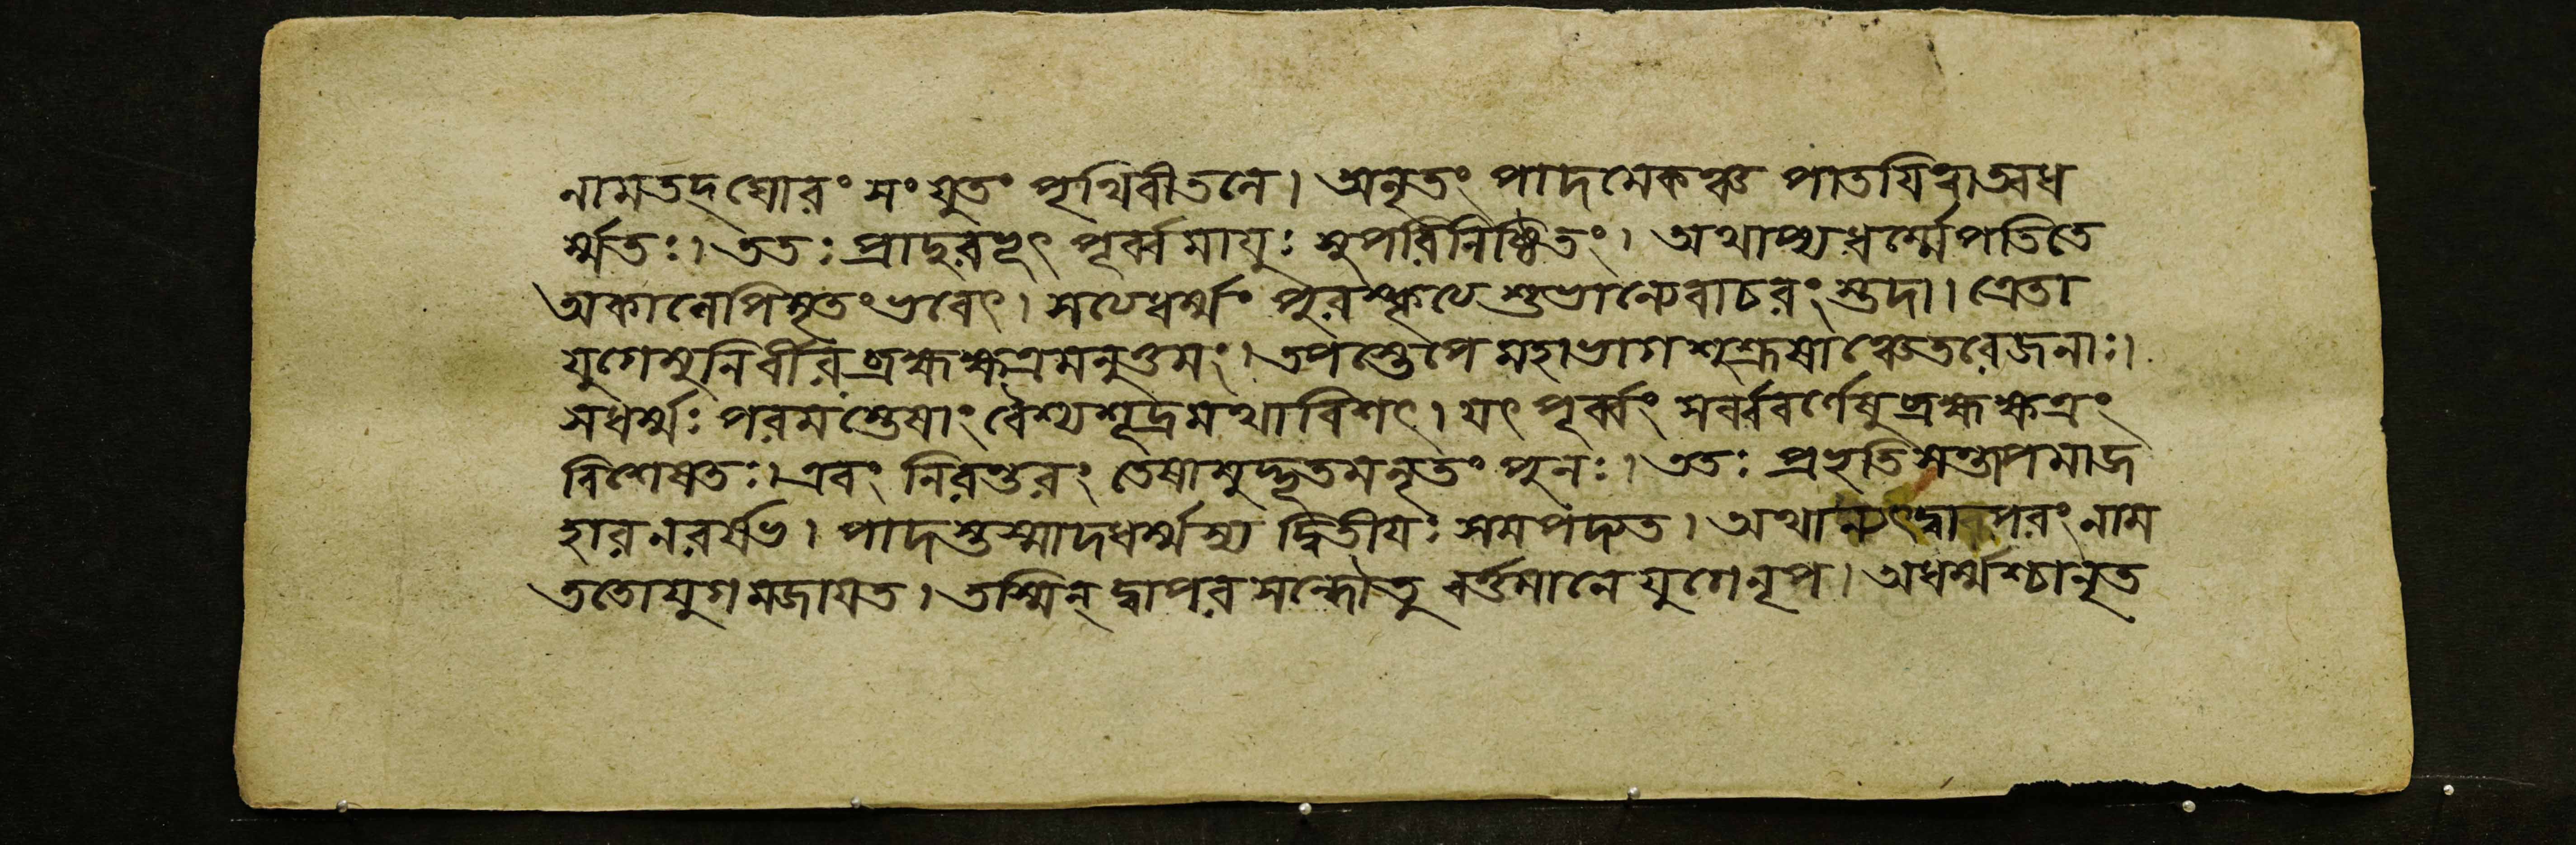 নামতদ্ ঘোরং সংযুতং পৃথিবীতলে। অনৃতং পাদমেকঞ্চ পাতযিত্বাঅধ
র্ম্মতঃ। ততঃ প্রাদুরভূৎ পূর্ব্বমাযুঃ সুপরিনিষ্ঠিতং। অথাপ্যধর্ম্মেপতিতে
অকালেপিমৃতংভবেৎ। সথেধর্ম্মং পুরস্কৃথে শুভান্যেবাচরংস্তদা। ত্রেতা
যুগেমুনির্বীরব্রহ্মক্ষত্রমনুত্তমং। তপস্তেপে মহাভাগ শুশ্রূষাঞ্চেতরেজনাঃ।
সধর্ম্মঃ পরমস্তেষাং বৈশ্যশূদ্রমথাবিশৎ। যৎ পূর্ব্বং সর্ব্ববর্ণেষুব্রহ্মক্ষত্রং
বিশেষতঃ। এবং নিরন্তরং তেষামুদ্ধৃতমনৃতং পুনঃ। ততঃ প্রভৃতি সন্তাপমাজ
হারনরর্ষভ। পাদস্তস্মাদধর্ম্মস্য দ্বিতীযঃ সমপদ্যত। অথান্যৎদ্বাপরংনাম
ততোযুগমজাযত। তস্মিন্ দ্বাপরসন্ধৌতু বর্ত্তমানে যুগেনৃপ। অধর্ম্মশ্চানৃত